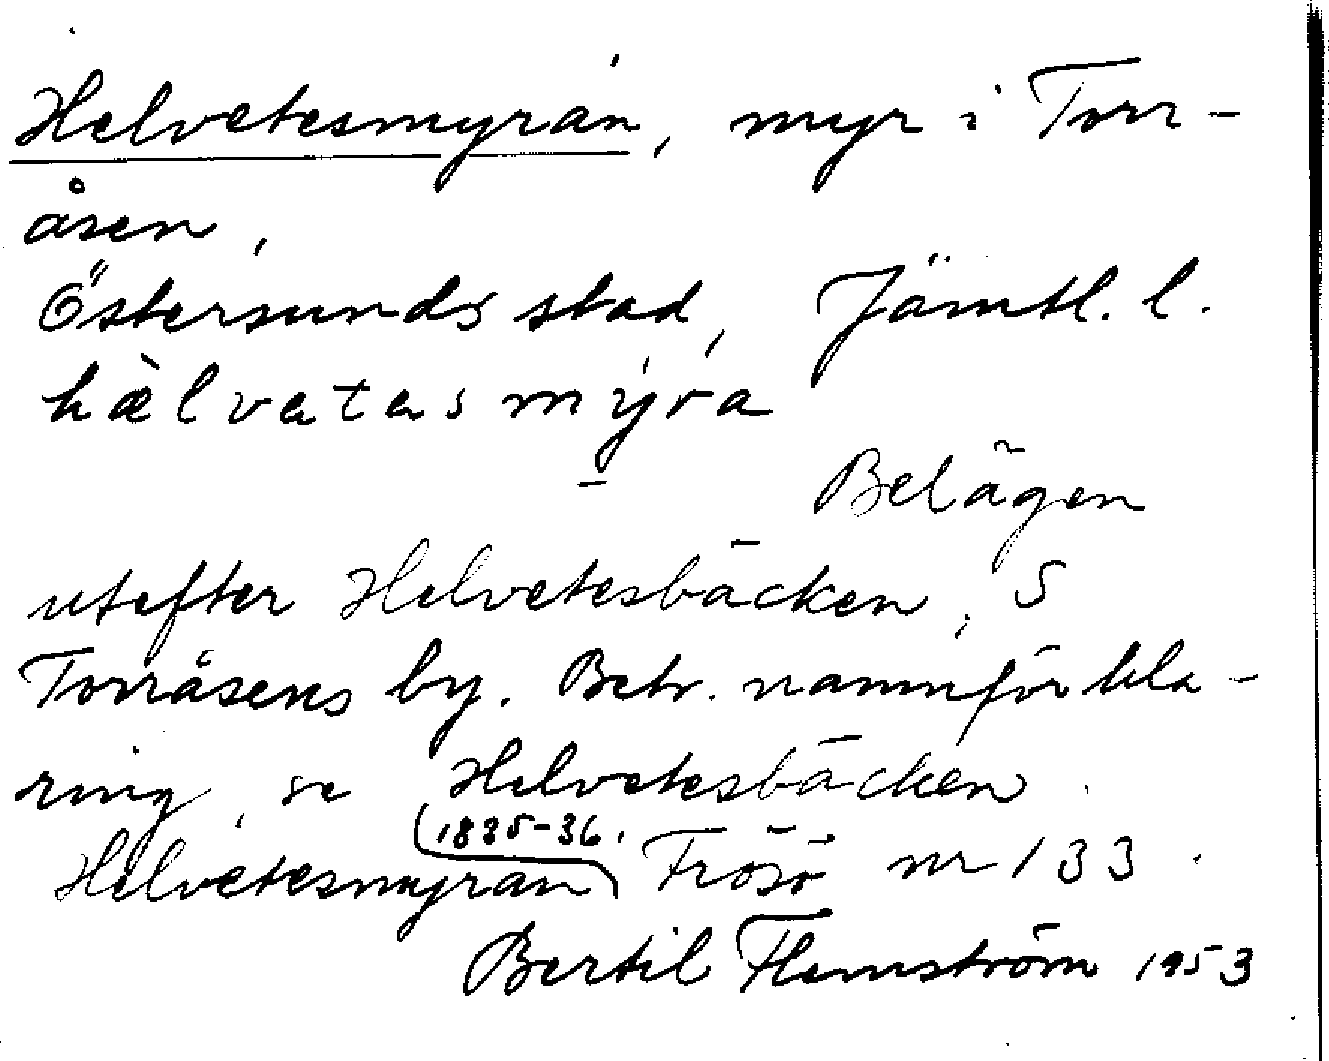 Helvetesmyran, myr i Torr-
åsen,
Östersunds stad, Jämtl. l.
hælvatasmýra
Belägen
utefter Helvetesbäcken, S
Torråsens by. Betr. namnförkla-
ring, se Helvetesbäcken.
Helvetesmyran 1835-36. Frösö nr 133.
Bertil Flemström 1953